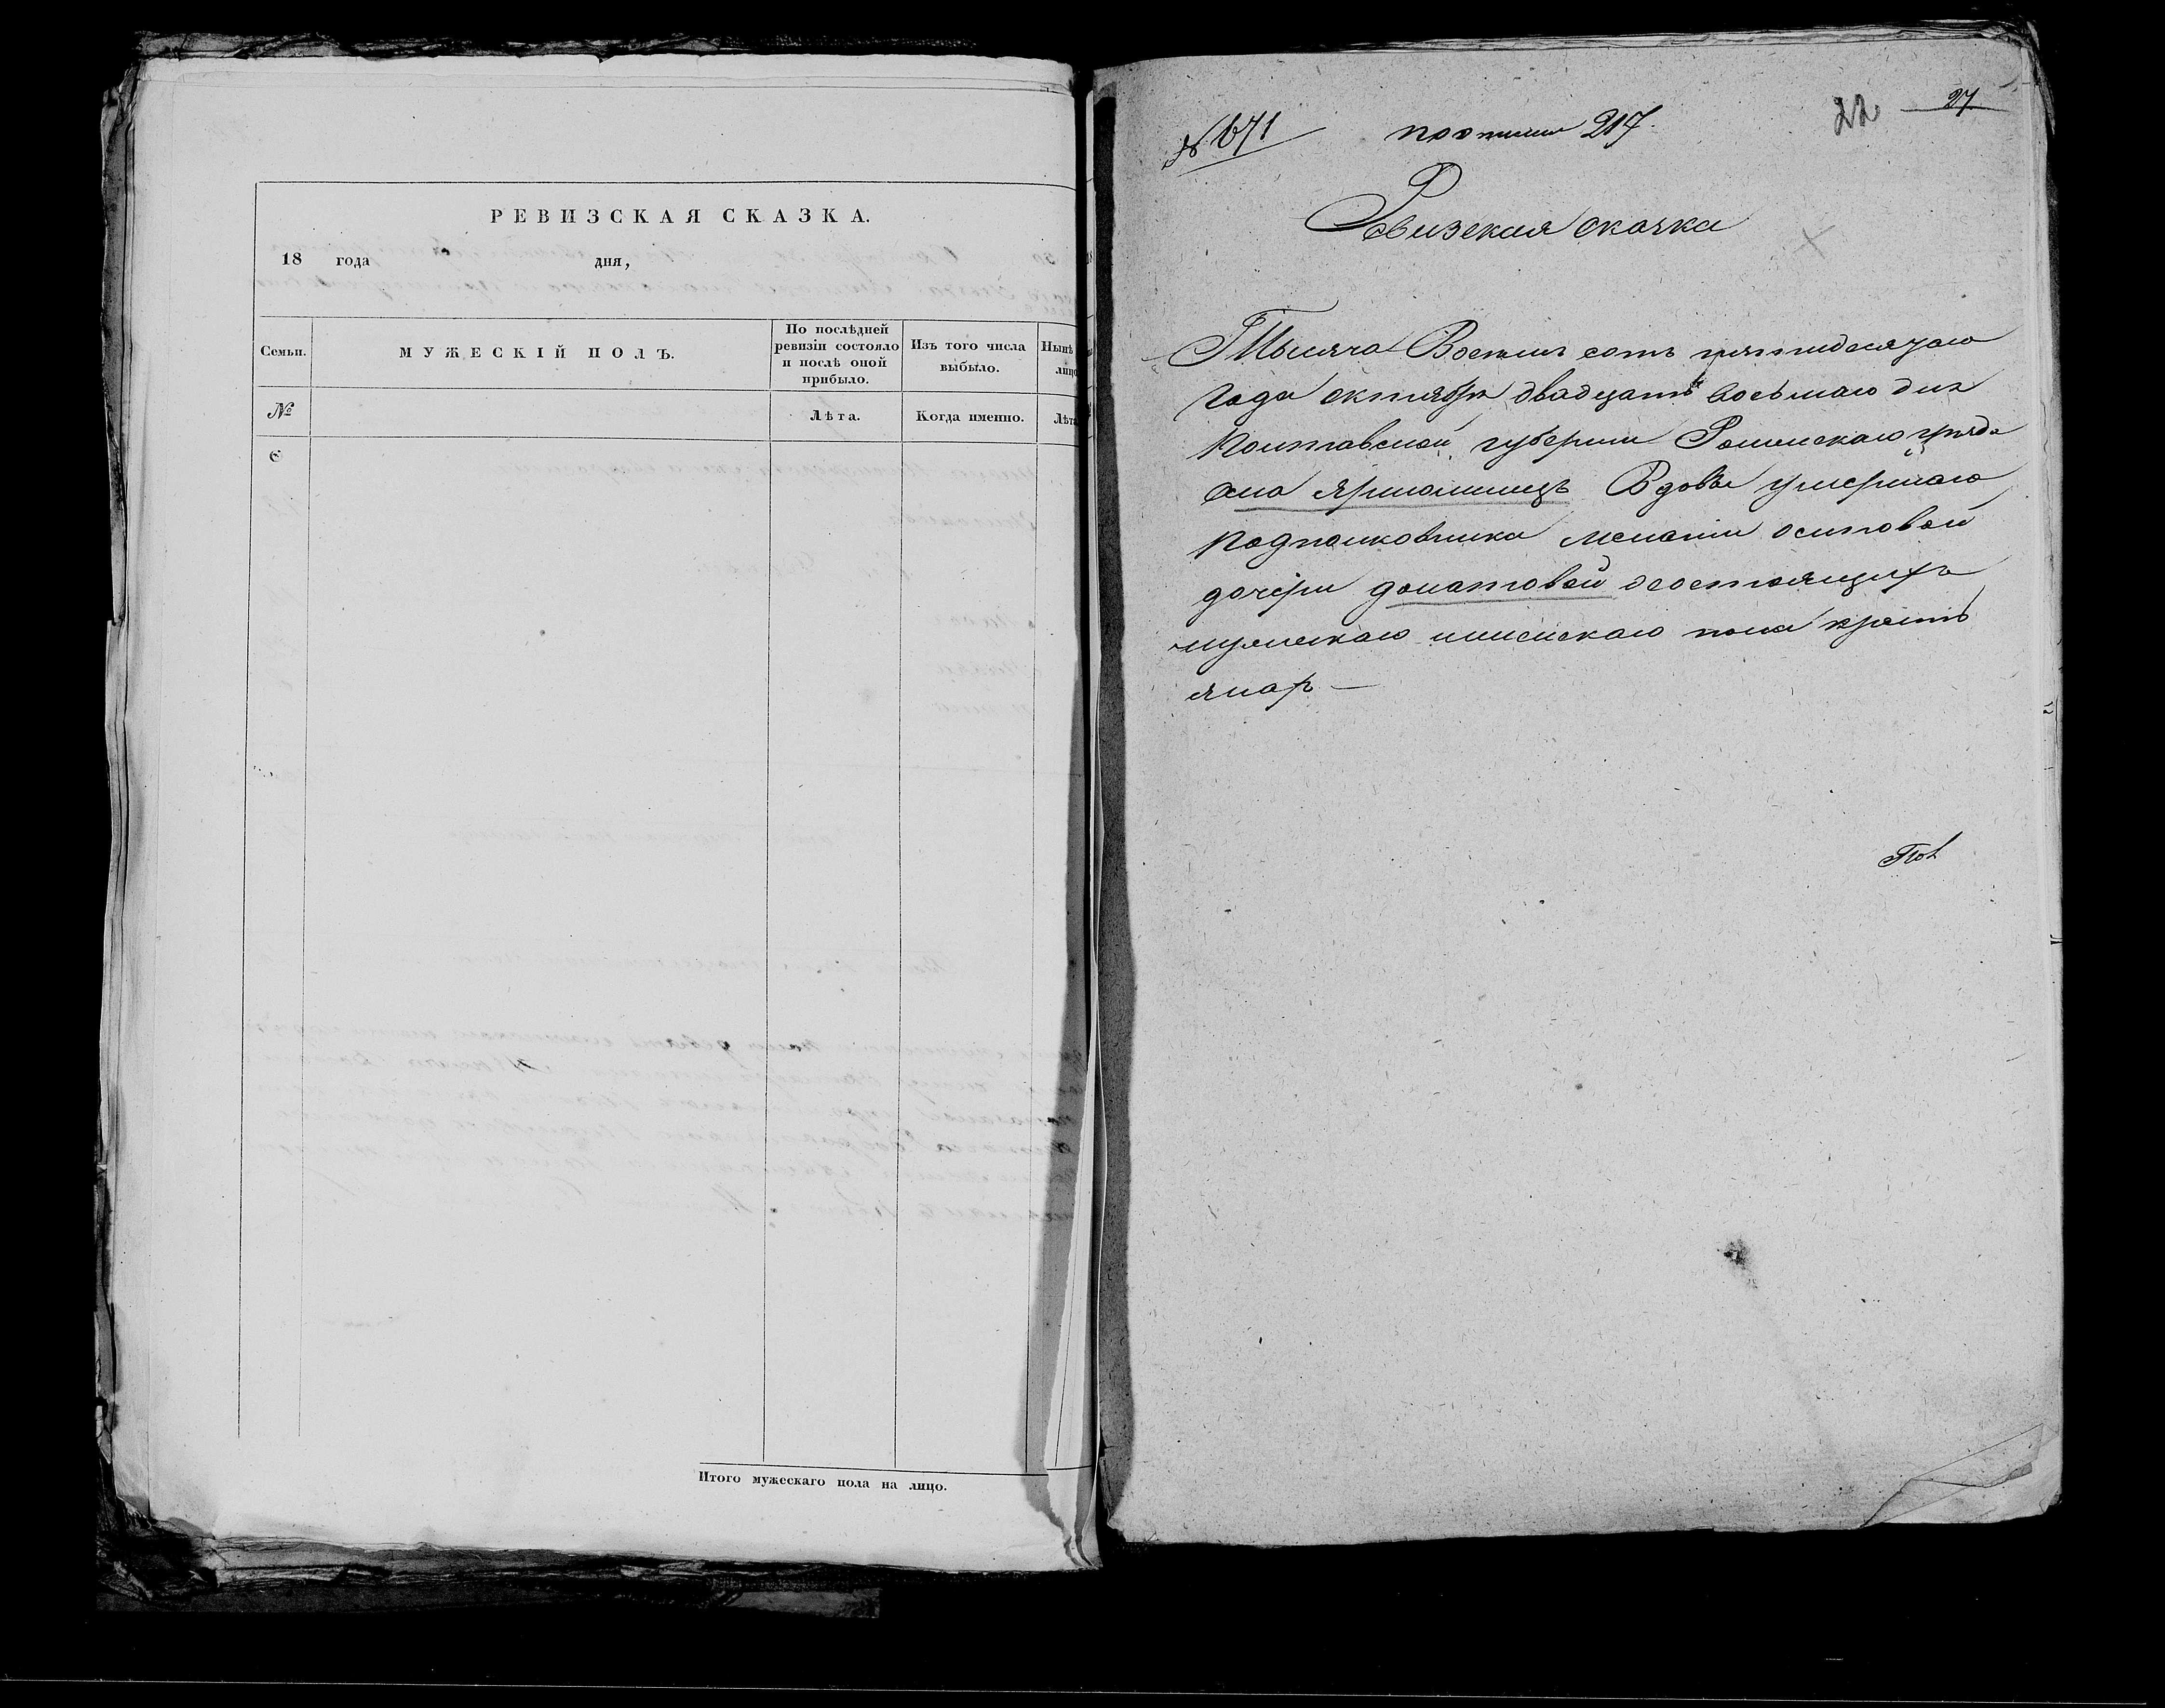 РЕВИЗСКАЯ СКАЗКА.
18 года дня,
Семьи.
МУЖЕСКІЙ ПОЛЪ.
По послѣдней
ревизіи состояло
и послѣ оной
прибыло.
Изъ того числа
выбыло.
Нынѣ
лицо
№
Лѣта.
Когда именно.
Лѣта
Итого мужескаго пола на лицо.
22 27
№ 671 по описи 217
Ревизская сказка
Тысяча Восемь сотъ пятидесятаго
года октября двадцать восьмаго дня
Полтавской губерніи Роменскаго уезда
села Ярмолинецъ Вдовы умершаго
Подполковника Меланіи Осиповой
дочери Долатовой о состоящихъ
мужескаго и женскаго пола кресть
янах
Пол